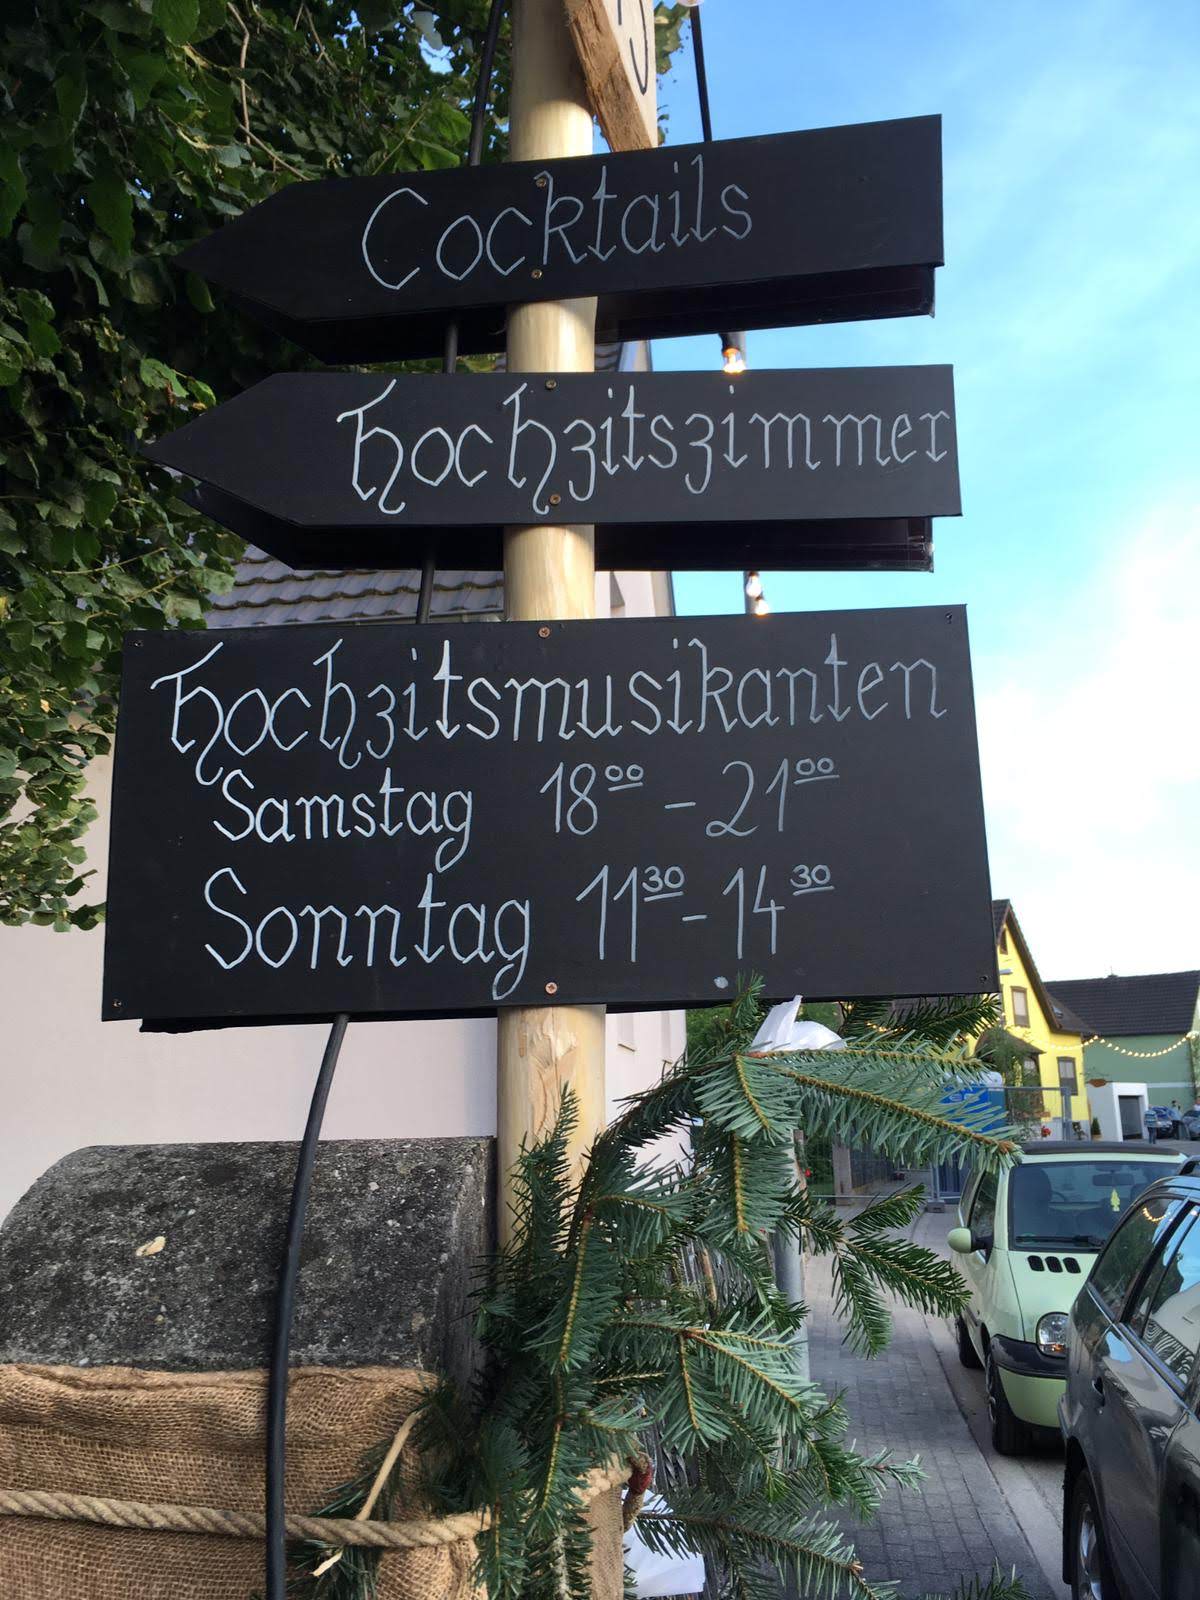 Cocktails
Hochzitszimmer
Hochzitsmusikanten
Samstag 18⁰⁰ - 21⁰⁰
Sonntag 11³⁰ - 14³⁰